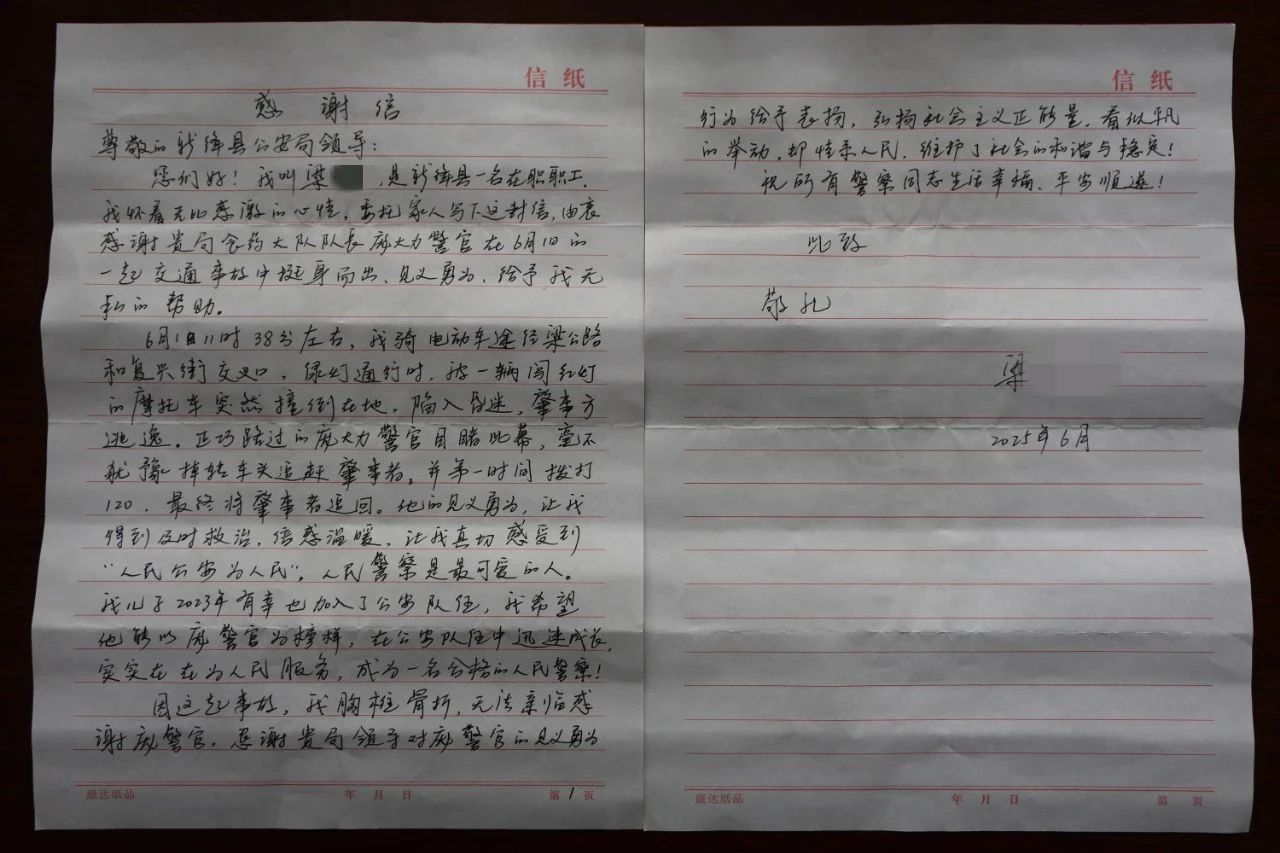 信纸
感谢信
尊敬的新绛县公安局领导:
您们好!我叫梁,是新绛县一名在职职工,
我怀着无比感激的心情,委托家人写下这封信,由衷
感谢贵局食药大队队长庞大力警官在6月1日的
一起交通事故中挺身而出、见义勇为、给予我无
私的帮助。
6月1日11时38分左右,我骑电动车途径梁公路
和复兴街交叉口,绿灯通行时,被一辆闯红灯
的摩托车突然撞倒在地,陷入昏迷,肇事方
逃逸。正巧路过的庞大力警官目睹此幕,毫不
犹豫掉转车头追赶肇事者,并第一时间拨打
120,最终将肇事者追回。他的见义勇为,让我
得到及时救治,倍感温暖,让我真切感受到
“人民公安为人民”,人民警察是最可爱的人。
我儿子2023年有幸也加入了公安队伍,我希望
他能以庞警官为榜样,在公安队伍中迅速成长,
实实在在为人民服务,成为一名合格的人民警察!
因这起事故,我胸椎骨折,无法亲临感
谢庞警官,恳谢贵局领导对庞警官的见义勇为
康达纸品 年 月 日 第1页
信纸
行为给予表扬,弘扬社会主义正能量,看似平凡
的举动,却情系人民,维护了社会的和谐与稳定!
祝所有警察同志生活幸福、平安顺遂!
此致
敬礼
梁
2025年6月
康达纸品 年 月 日 第 页